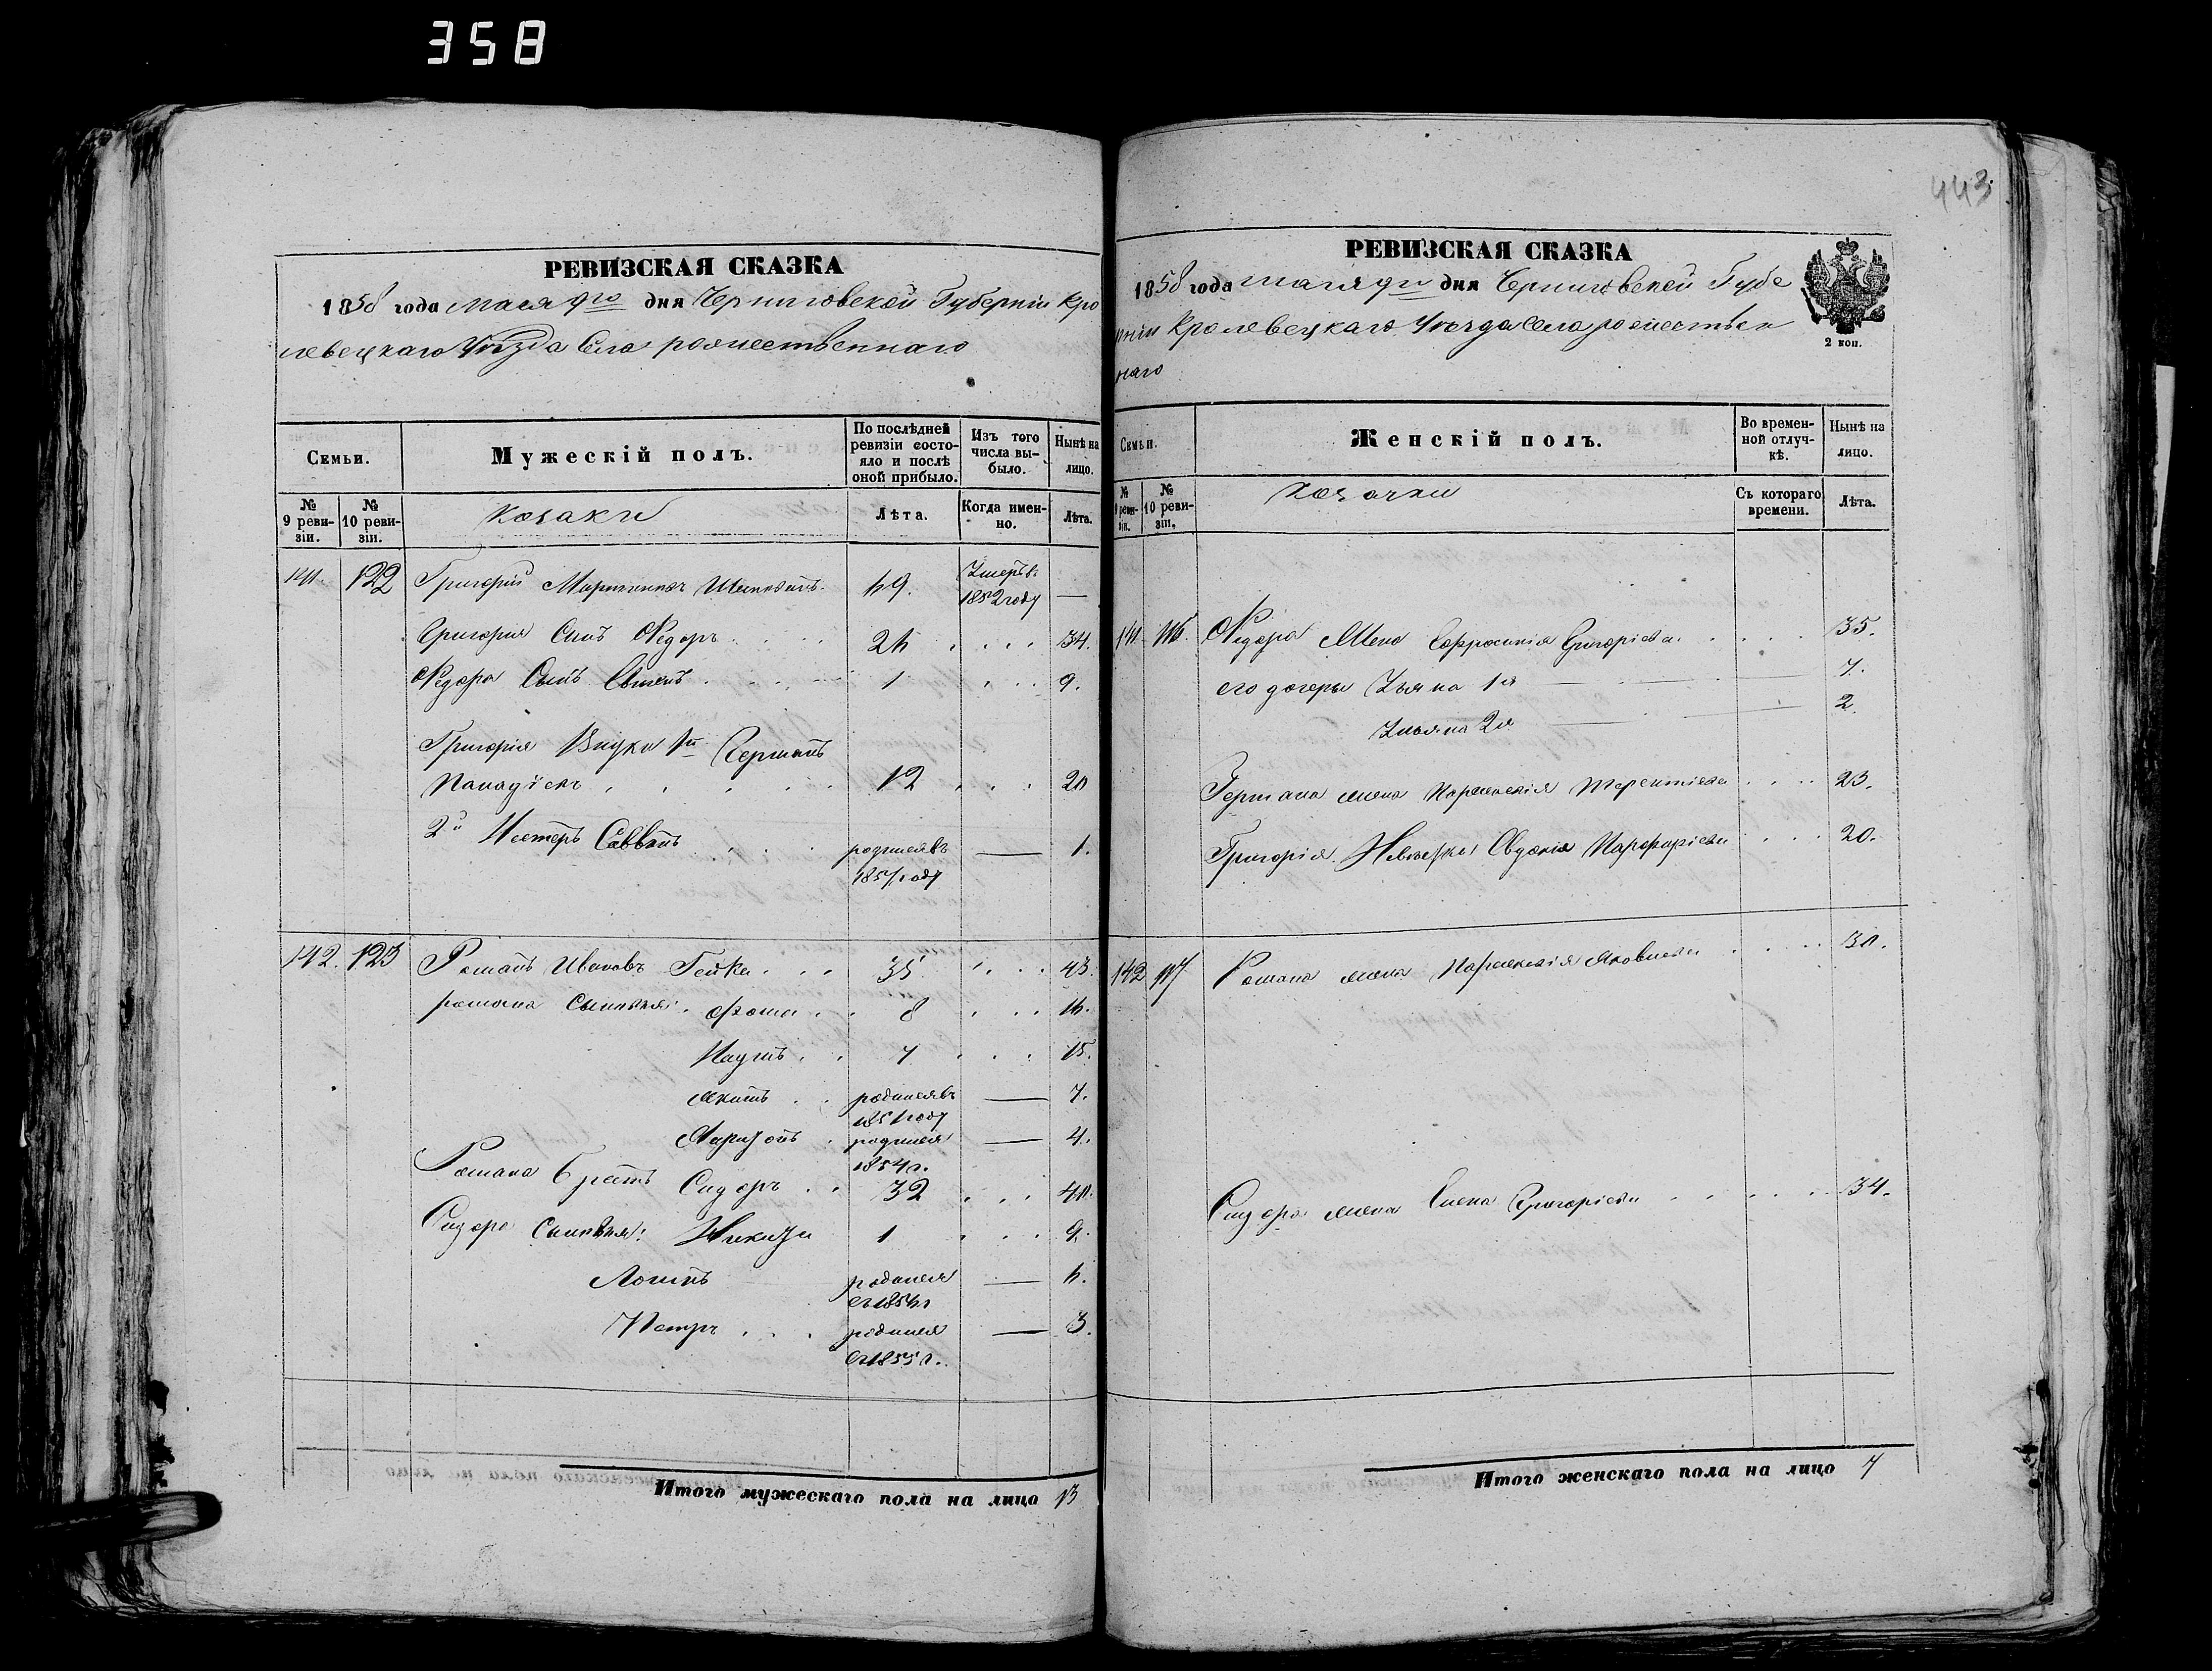 358
443
РЕВИЗСКАЯ СКАЗКА
1858 года мая 9го дня Черниговской Губернии Кро
левецкаго Уѣзда Села рожественнаго
Семьи.
Мужескій полъ.
По послѣдней ревизіи состо-яло и послѣ оной прибыло.
Изъ того числа вы-было.
Нынѣ на лицо.
№ 9 реви-зіи.
№ 10 реви-зіи.
козаки
Лѣта.
Когда имен-но.
Лѣта.
141. 122 Григорій 49. Умеръ въ 1852 году —
Григорія Сынъ Ѳедоръ 26 34.
Ѳедора Сынъ 1 9.
Григорія Внуки 1й Германъ
12 20
2й Нестеръ Саввинъ родился въ 1857 году — 1.
142. 123 Романъ Ивановъ Гейка 35 43.
романа Сыновья: Ѳома 8 16.
Наумъ 7 15.
Акимъ родился въ 1851 году — 7.
Харитонъ родился 1854 г. — 4.
Романа братъ Сидоръ 32 40.
Сидора Сыновья: Никита 1 9.
Логинъ родился въ 1854 г — 4.
Петръ родился въ 1855 г. — 3.
Итого мужескаго пола на лицо 13
РЕВИЗСКАЯ СКАЗКА
1858 года мая 9го дня Черниговской Губе
рніи Кролевецкаго Уѣзда Села рожествен
наго
2 коп.
Семьи.
Женскій полъ.
Во времен-ной отлуч-кѣ.
Нынѣ на лицо.
№ 9 реви-зіи.
№ 10 реви-зіи.
козачки
Съ котораго времени.
Лѣта.
141 116. Ѳедора Жена Евфросинія Григоріева 35.
его дочери Ульяна 1я — 7.
Ульяна 2я — 2
Германа жена Параскевія Терентіева 23.
Григорія Невѣстка Евдокія Парфиріева 20.
142 117 Романа жена Параскевія Яковлева 30.
Сидора жена Елена Григоріева 34.
Итого женскаго пола на лицо 7